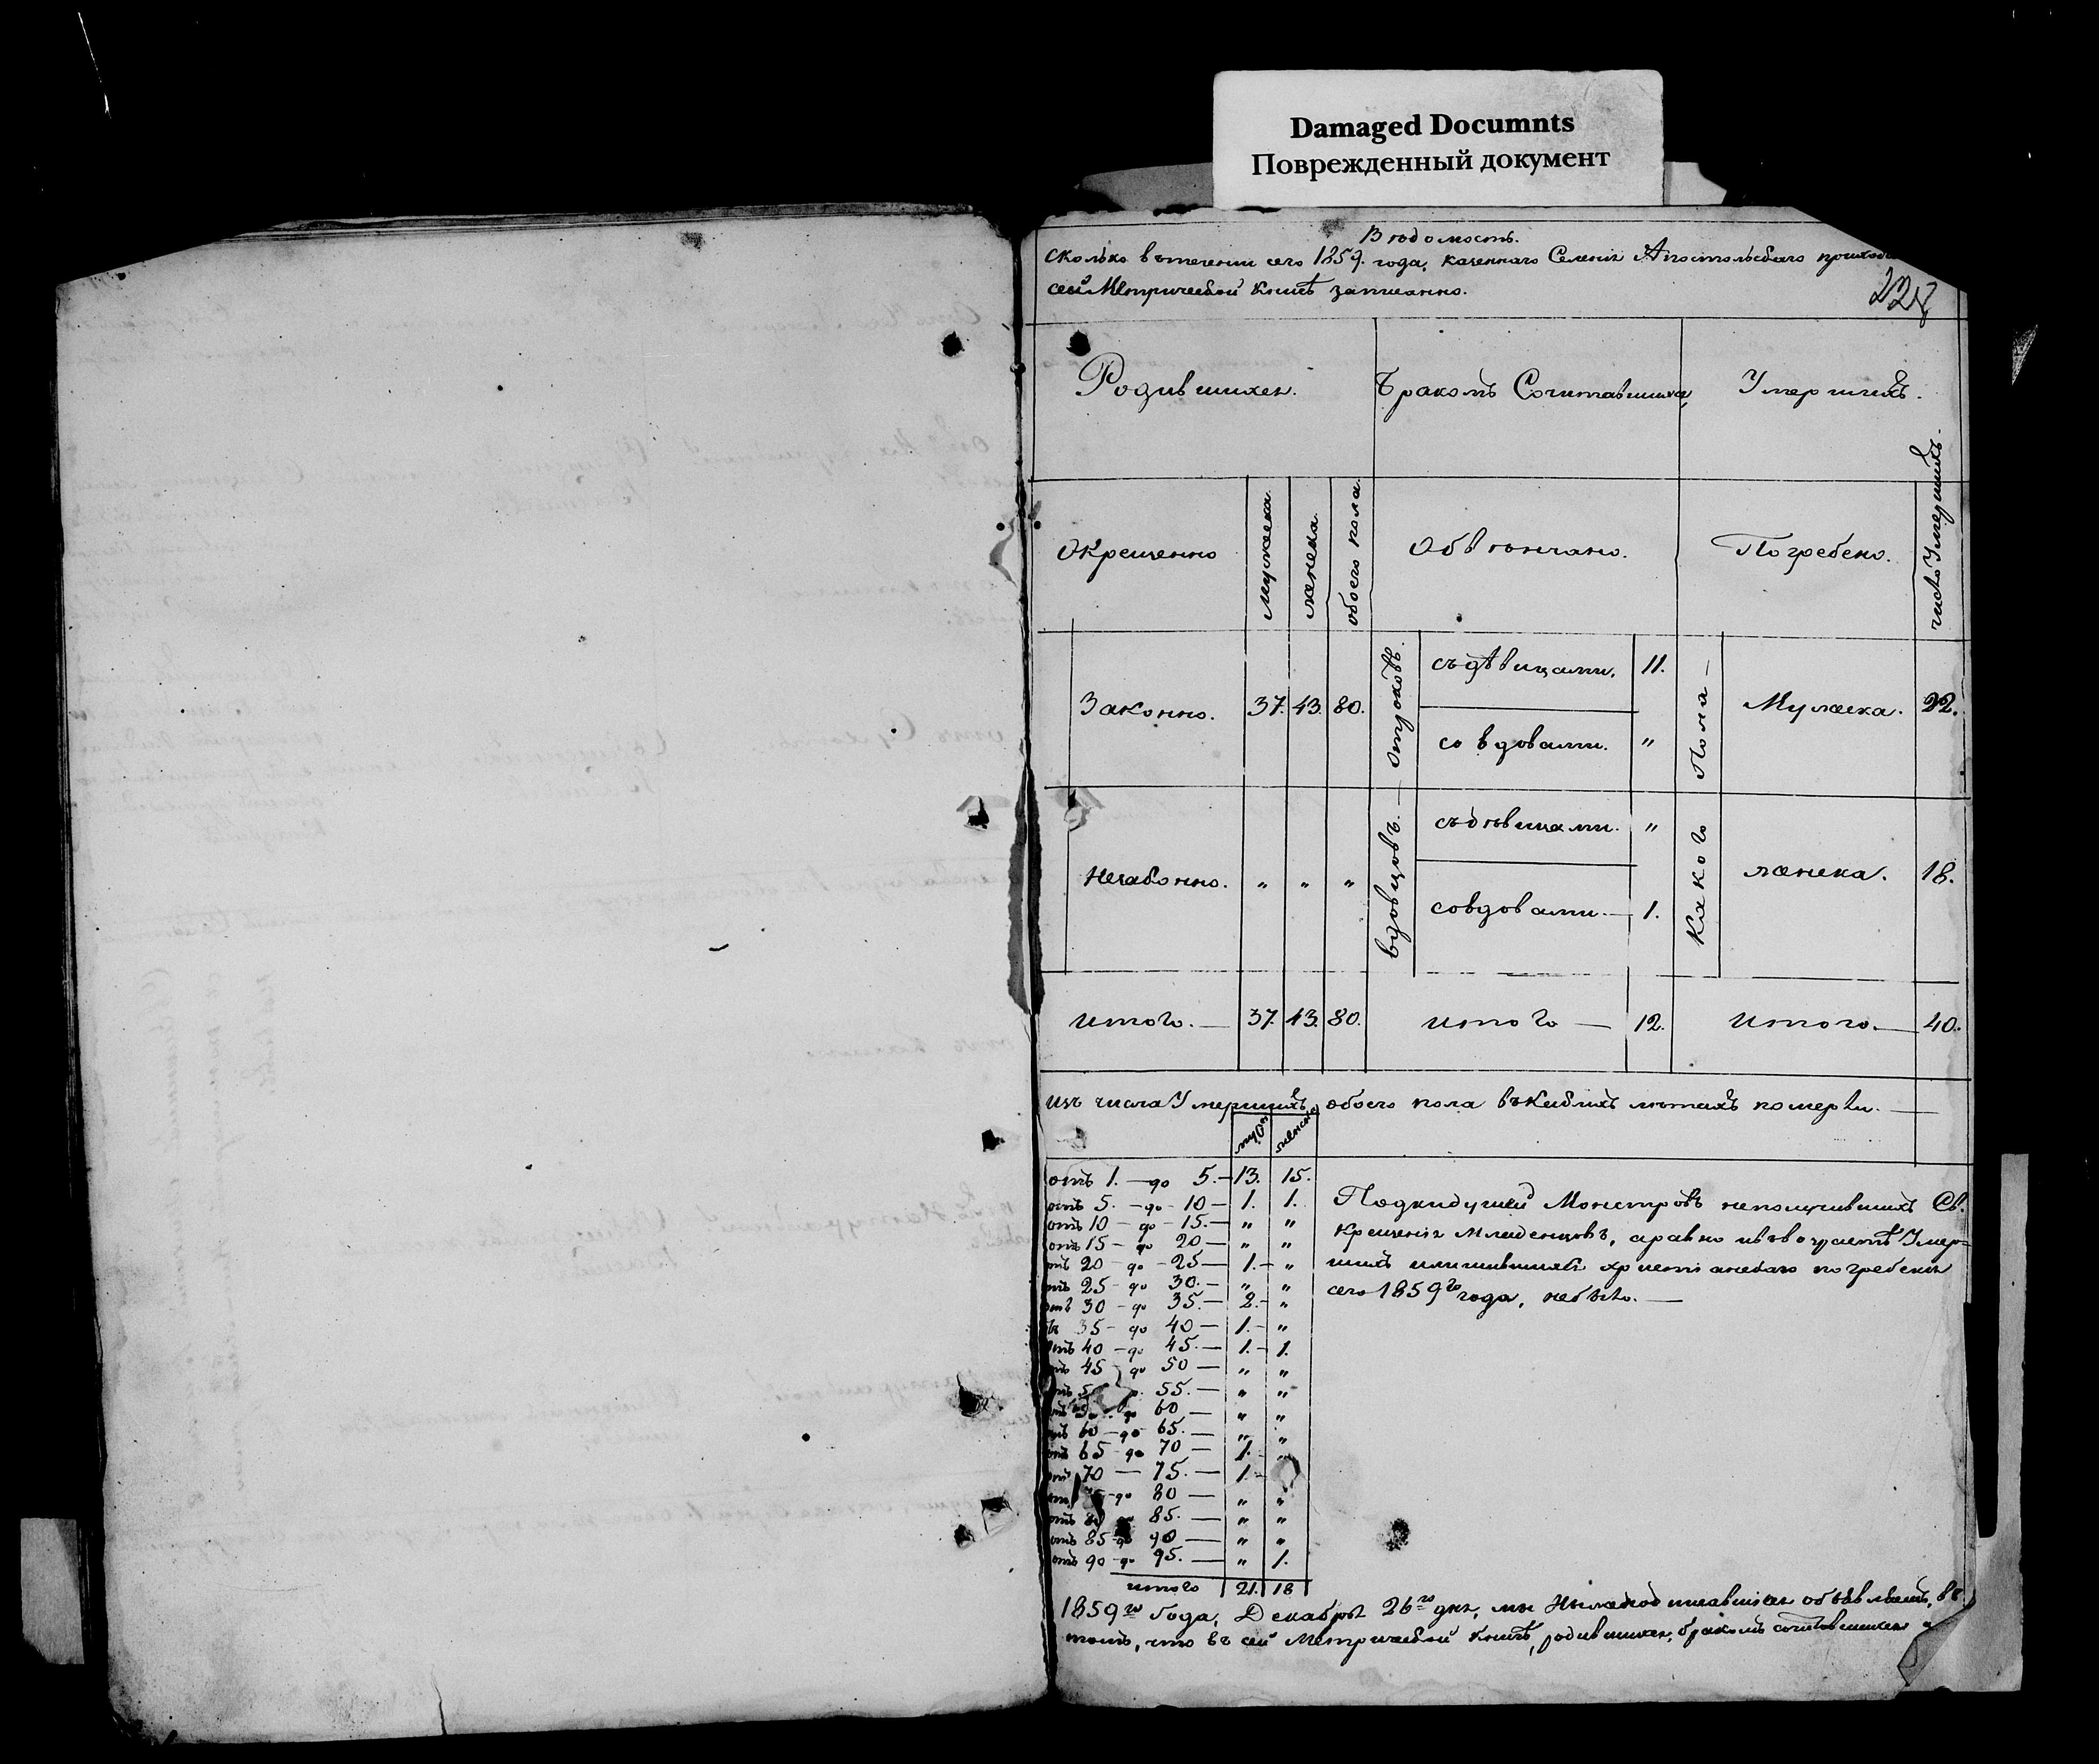 Damaged Documnts
Поврежденный документ
Вѣдомость.
Сколько в теченіи сего 1859. года, казеннаго Селенія Апостольскаго
сей Метрической Книгѣ записанно.
Родившихся. Бракомъ Сочитавшихся, Умершихъ.
Окрещенно мужеска. женска. обоего пола. Обвѣнчано. Погребено. число Умершихъ.
Законно. 37. 43. 80. отроковъ. съ дѣвицами. 11. пола — Мужеска. 22.
со вдовами. "
вдовцовъ. — съ дѣвицами. " Какого женска. 18.
Незаконно. " " "
со вдовами. — 1.
итого. — 37. 43. 80. итого — 12. итого. — 40.
изъ числа Умершихъ обоего пола въ какихъ лѣтахъ померли. —
муж женск
отъ 1. — до 5. — 13. 15.
отъ 5. — до 10 — 1. 1.
отъ 10 — до — 15. — " "
отъ 15 — до 20 — " "
отъ 20 — до — 25 — 1. — "
отъ 25 — до 30. — " "
отъ 30 — до 35. — 2. — "
35 — до 40 — 1. — "
отъ 40 — до 45. — 1. — 1.
отъ 45 до 50 — " "
55. — " "
до 60 — " "
отъ 60 — до 65. — " "
отъ 65 — до 70 — 1. "
отъ 70 — 75. — 1. —
до 80 — " "
отъ 80 85. — " "
отъ 85 до 90 — " "
отъ 90 до 95. — " 1.
итого 21. 18
Подкидушей Монстровъ неполучившихъ Св.
Крещенія младенцовъ, а равно и въ возрастѣ Умер=
шихъ и лишившихся христіанскаго погребенія
сего 1859го года, небыло. —
1859го Года, Декабря 26го дня, мы Нижеподписавшіеся объявляемъ, въ
томъ, что въ сей Метрической Книгѣ, родившихся, бракомъ сочитавшихся